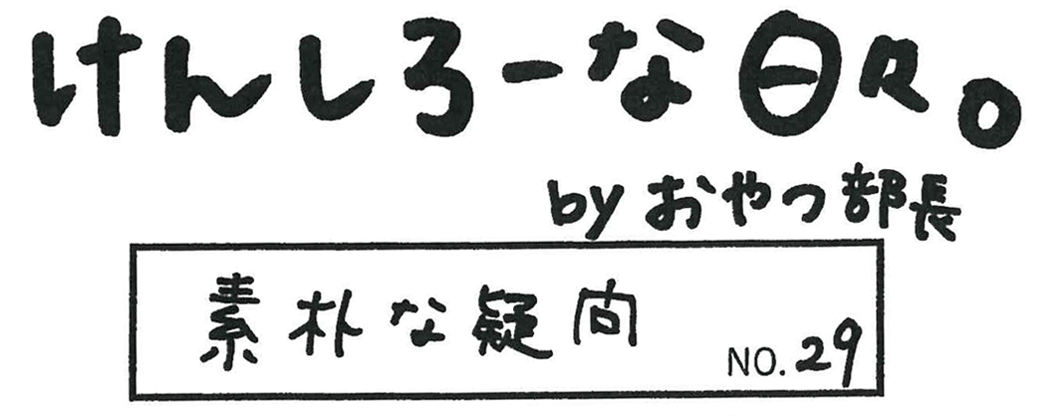 けんしろーな日々。
by おやつ部長
素朴な疑問
NO. 29